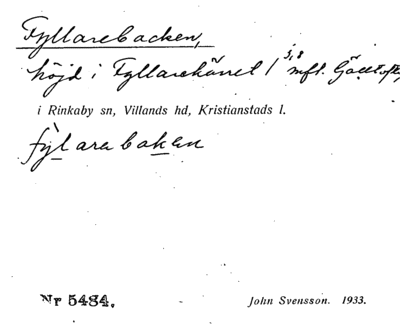 Fyllarebacken,
höjd i Fyllarehörnet 1 3,8 mft. Gälltofta,
i Rinkaby sn, Villands hd, Kristianstads l.
fỳlarebakẹn
Nr 5484. John Svensson. 1933.